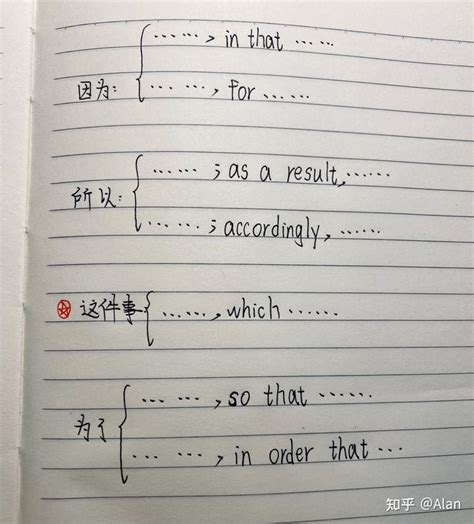 因为: ……, in that ……
……, for ……
所以: ……; as a result, ……
……; accordingly, ……
这件事 ……, which ……
为了 ……, so that ……
……, in order that …
知乎 @Alan